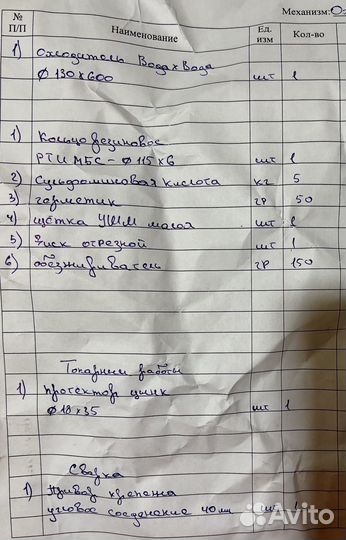 Механизм: О
№ П/П Наименование Ед. изм Кол-во
1) Охладитель Вода х Вода
Ø 130 х 600 шт 1
1) Кольцо резиновое
РТИ МБС - Ø 115 х 6 шт 1
2) Сульфаминовая кислота кг 5
3) герметик гр 50
4) щётка УШМ малая шт 1
5) Диск отрезной шт 1
6) обезжириватель гр 150
Токарные работы
1) протектор цинк
Ø 18 х 35 шт 1
Сварка
1) крепежа
угловое соеденение 40 мм шт 1
Avito